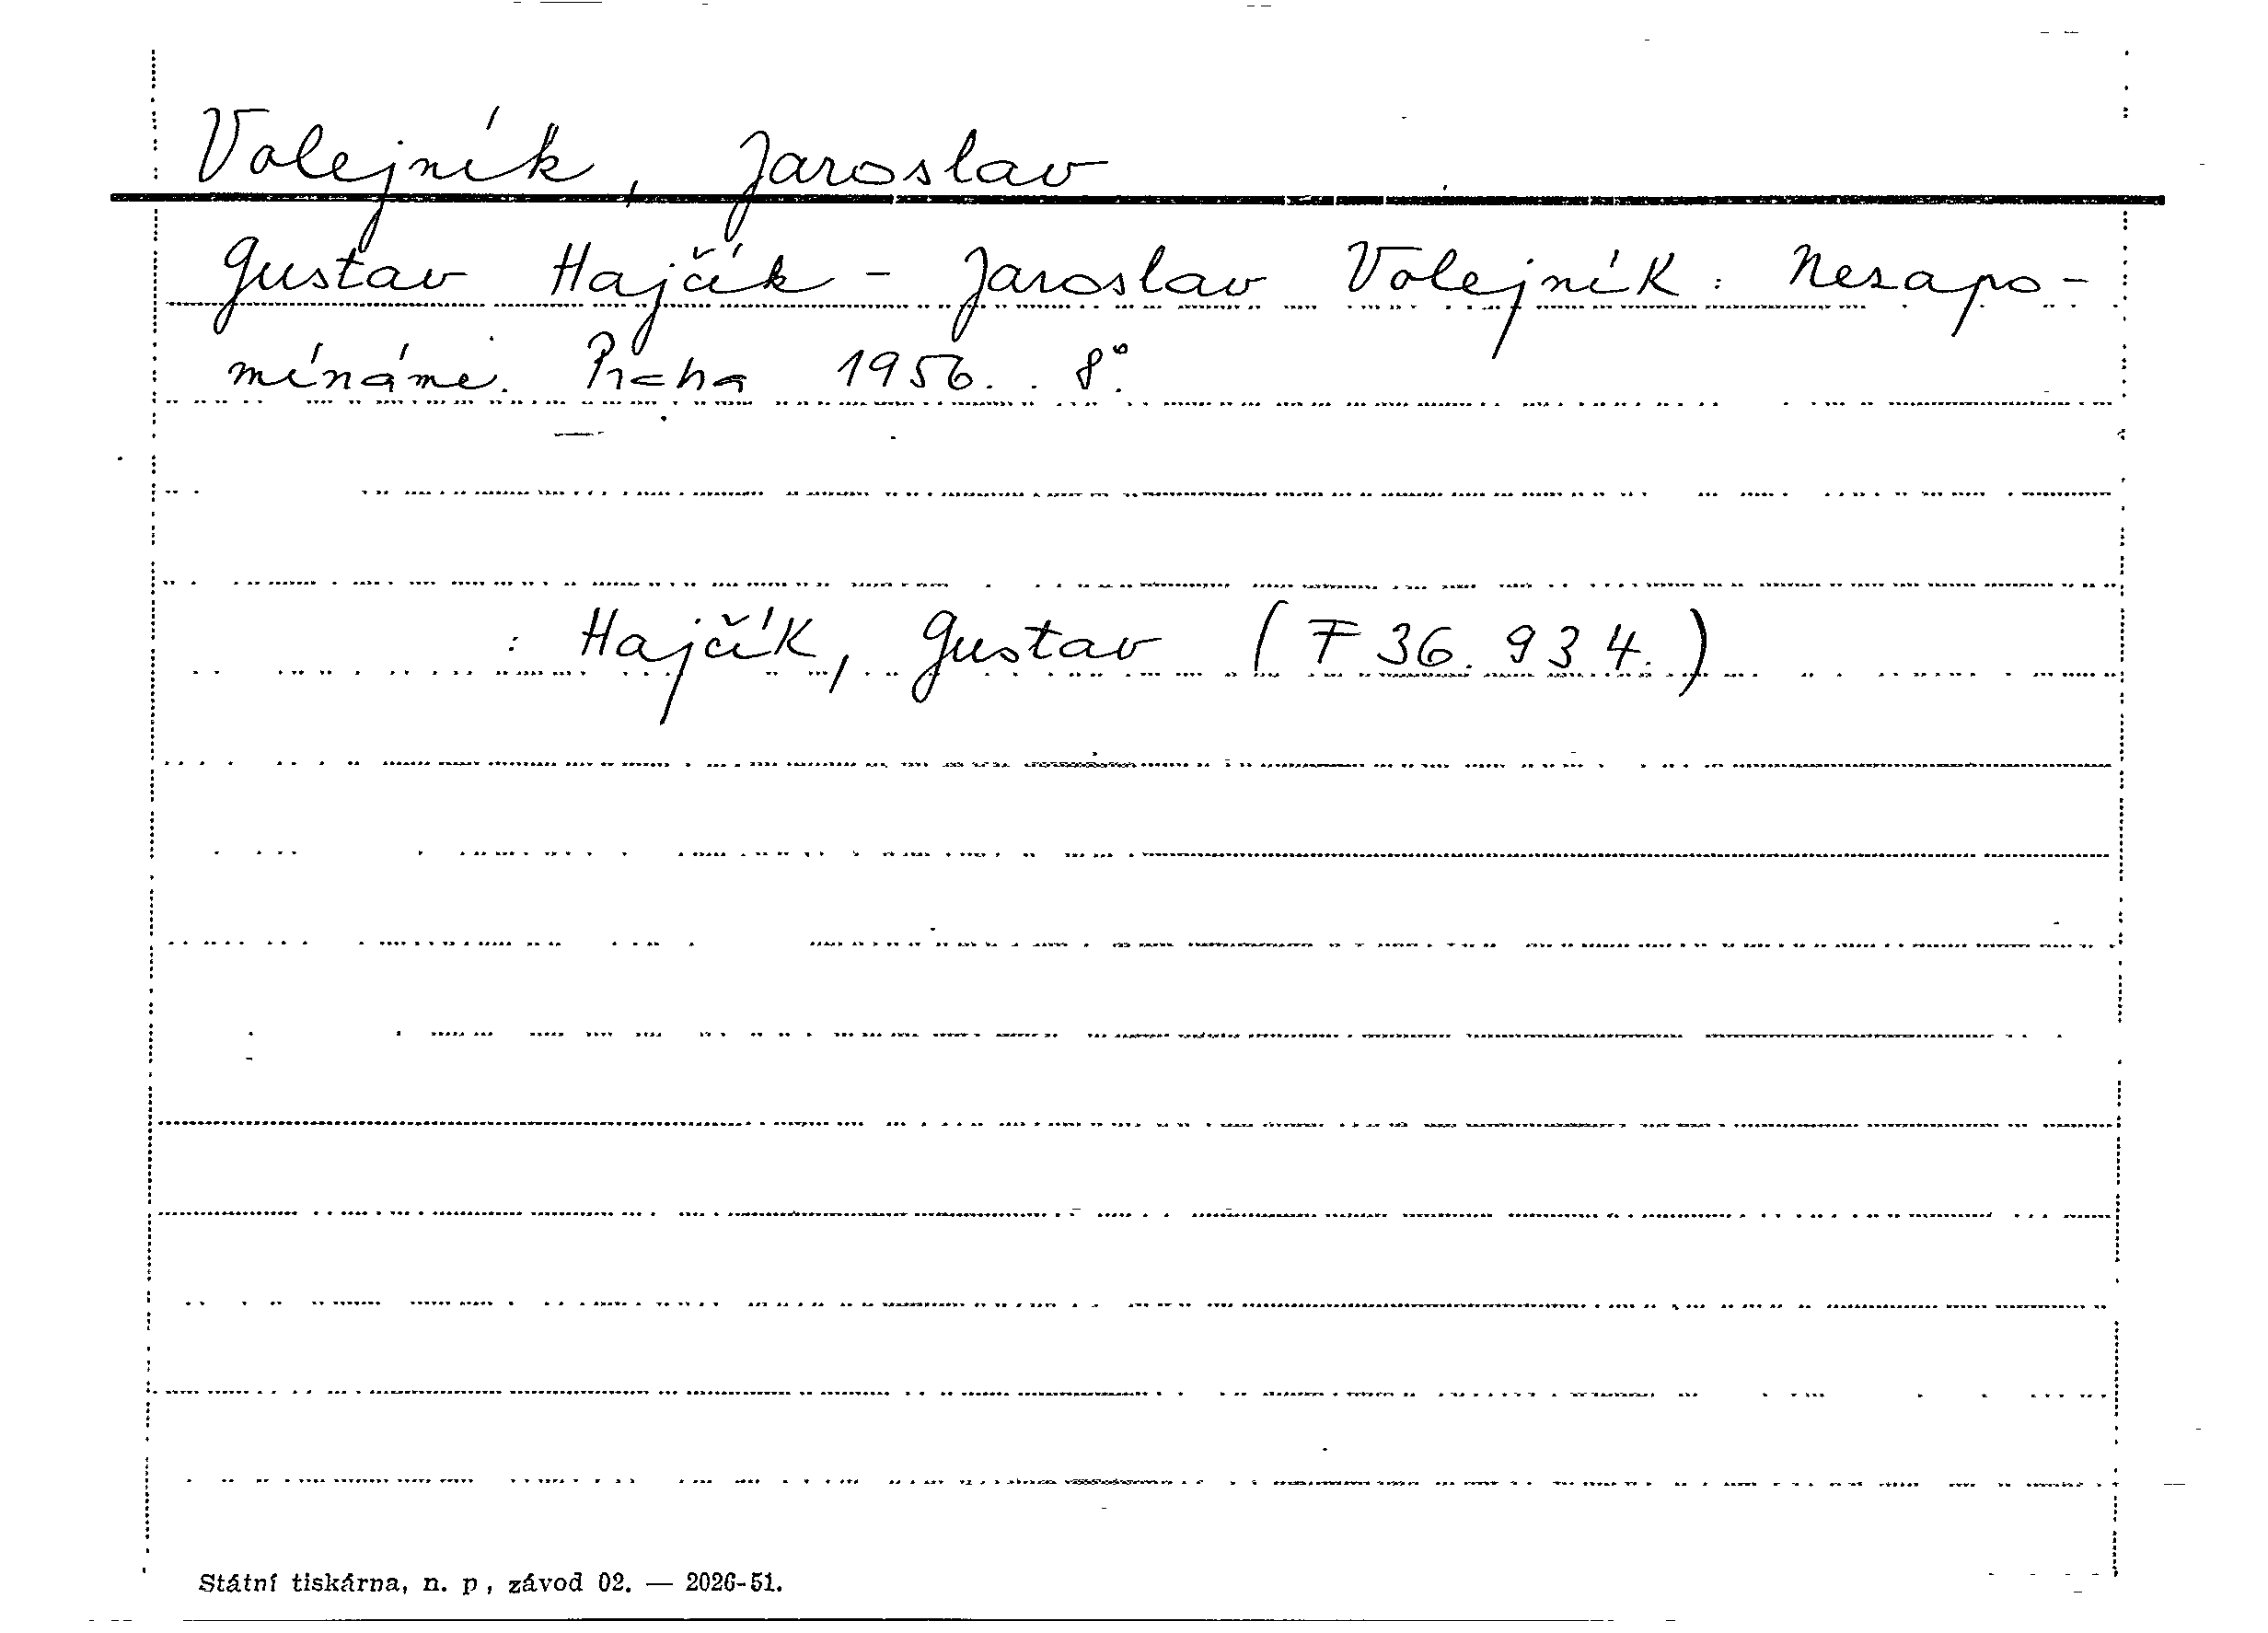 Volejník, Jaroslav
Gustav Hajčík - Jaroslav Volejník: Nezapo-
mínáme. Praha 1956. 8°.
: Hajčík, Gustav (F 36.934.)
Státní tiskárna, n. p., závod 02. — 2026-51.